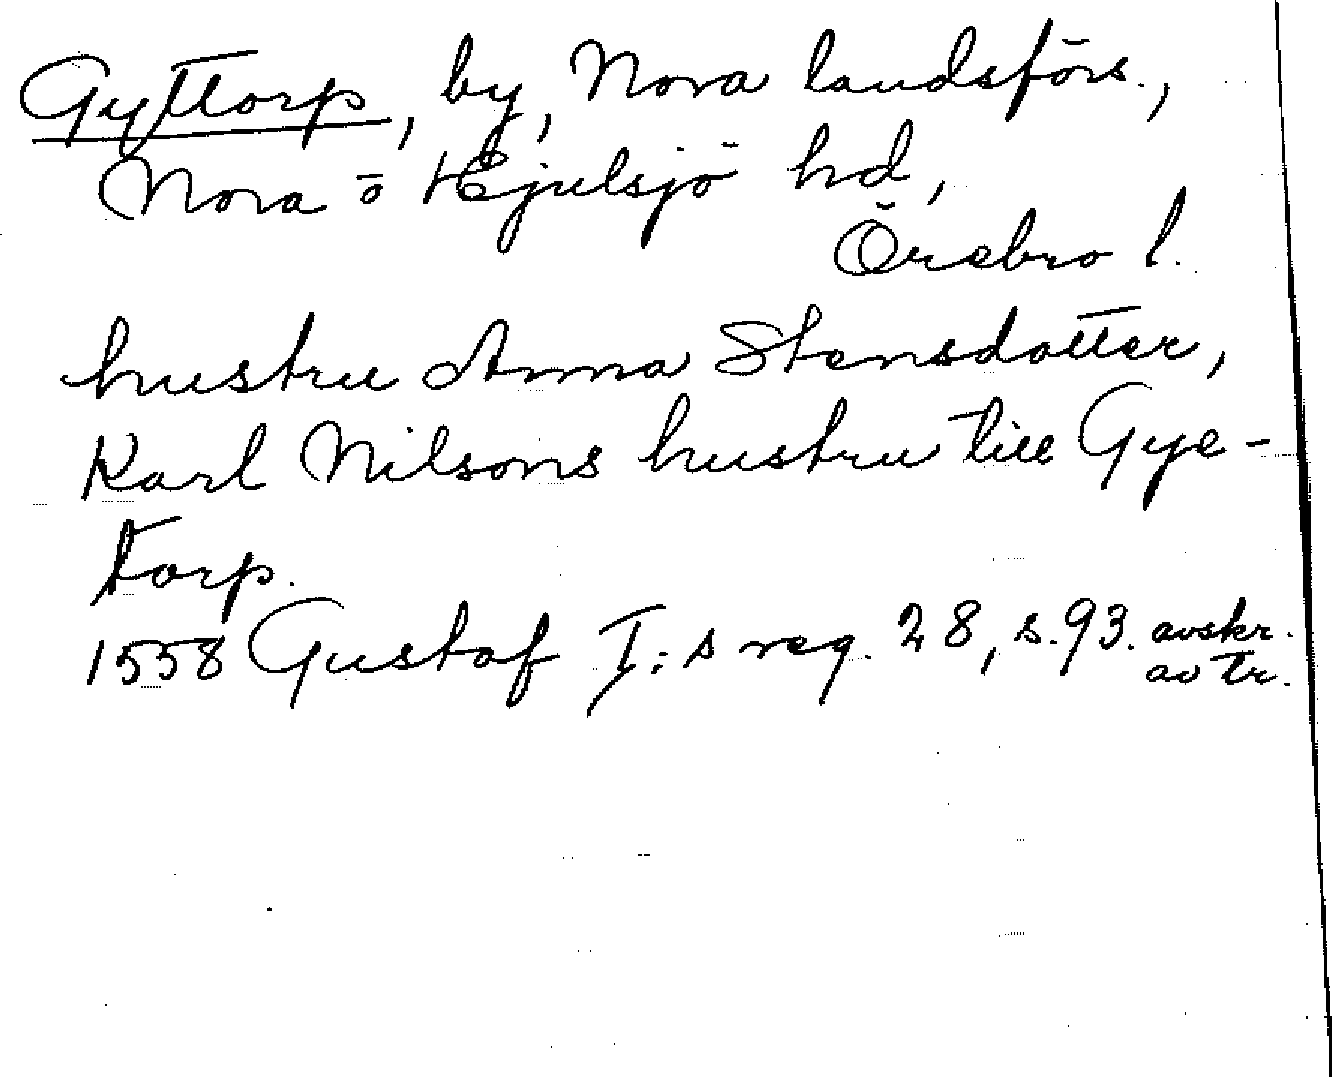 Gyttorp, by, Nora landsförs.,
Nora o Hjulsjö hd,
Örebro l.
hustru Anna Stensdotter,
Karl Nilsons hustru till Gye-
torp.
1558 Gustaf I:s reg. 28, s. 93. avskr.
av tr.